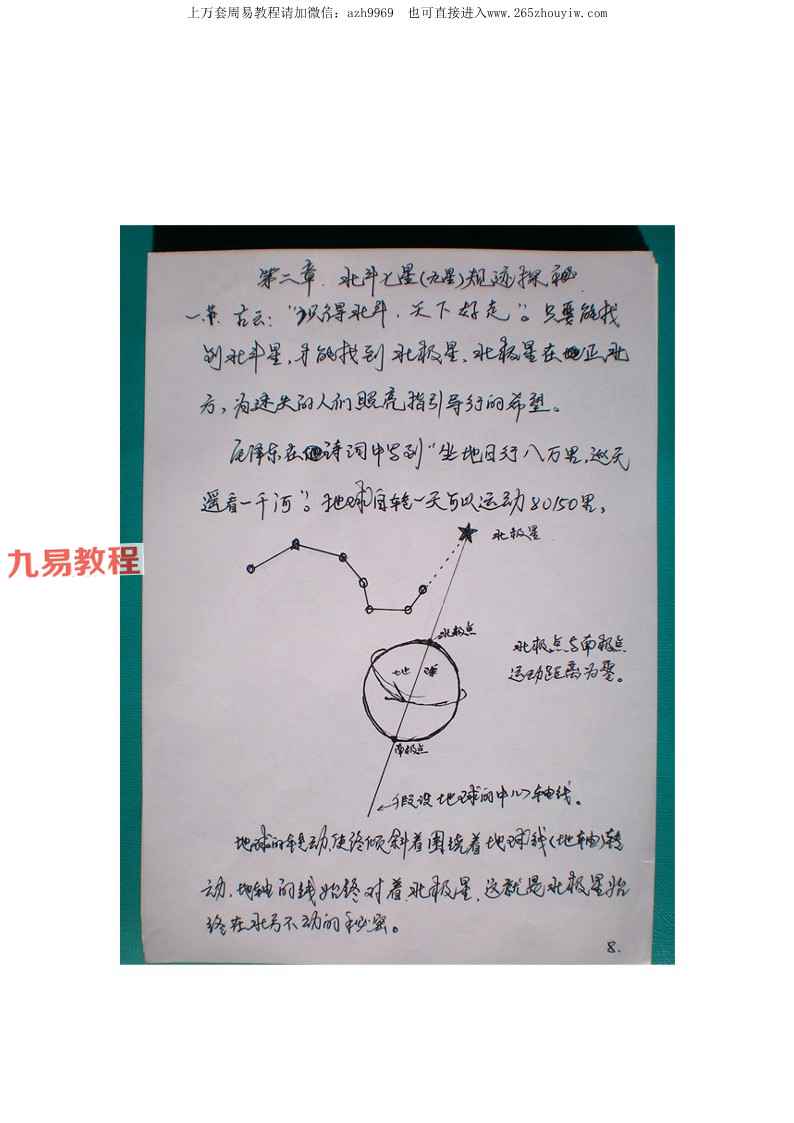 上万套周易教程请加微信：azh9969　也可直接进入www.265zhouyiw.com
第二章.北斗七星(九星)规迹探秘
一节.古云：“识得北斗.天下好走”。只要能找
到北斗星,并能找到北极星、北极星在地正北
方,为迷失的人们照亮指引导行的希望。
毛泽东在他诗词中写到“坐地日行八万里,巡天
遥看一千河”。地球自转一天可以运动80150里,
北极星
九易教程
北极点
北极点与南极点
运动距离为零。
地球
南极点
假设地球的中心轴线。
地球的转动,使终倾斜着围绕着地球线(地轴)转
动.地轴的线始终对着北极星.这就是北极星始
终在北方不动的秘密。
8.